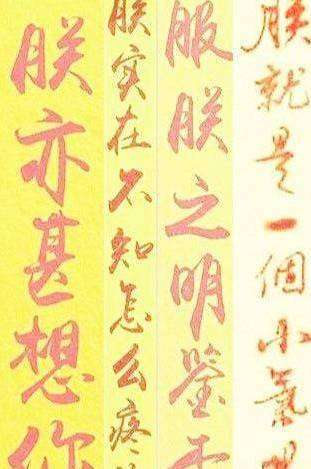 朕就是一個小氣
服朕之明鉴
朕实在不知怎么疼
朕亦甚想你